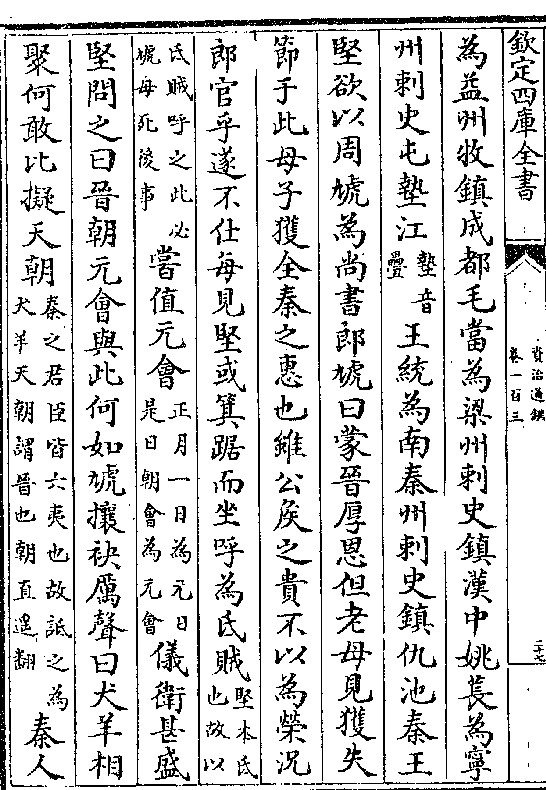 欽定四庫全書
資治通鑑
卷一百三
二十七
為益州牧鎮成都毛當為梁州刺史鎮漢中姚萇為寧
州刺史屯墊江墊音疊王統為南秦州刺史鎮仇池秦王
堅欲以周虓為尚書郎虓曰蒙晉厚恩但老母見獲失
節于此母子獲全秦之惠也雖公侯之貴不以為榮況
郎官乎遂不仕每見堅或箕踞而坐呼為氐賊堅本氐也故以
氐賊呼之此必虓母死後事嘗值元會正月一日為元日是日朝會為元會儀衛甚盛
堅問之曰晉朝元會與此何如虓攘袂厲聲曰犬羊相
聚何敢比擬天朝秦之君臣皆六夷也故詆之為犬羊天朝謂晉也朝直遥翻秦人